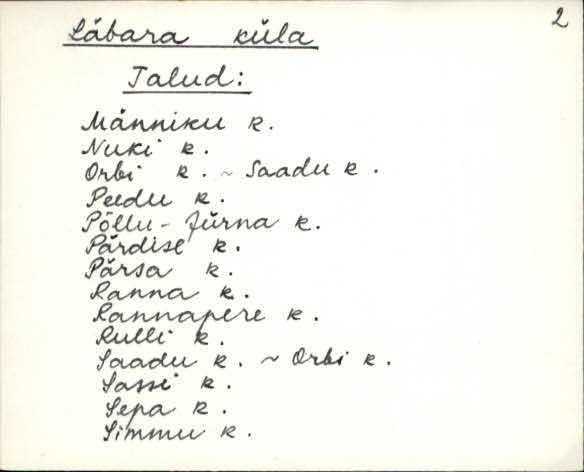 2
Läbara küla
Talud:
Männiku k.
Nuki k.
Orbi k. ~ Saadu k.
Peedu k.
Põllu-Jürna k.
Pärdise k.
Pärsa k.
Ranna k.
Rannapere k.
Rulli k.
Saadu k. ~ Orbi k.
Sassi k.
Sepa k.
Simmu k.